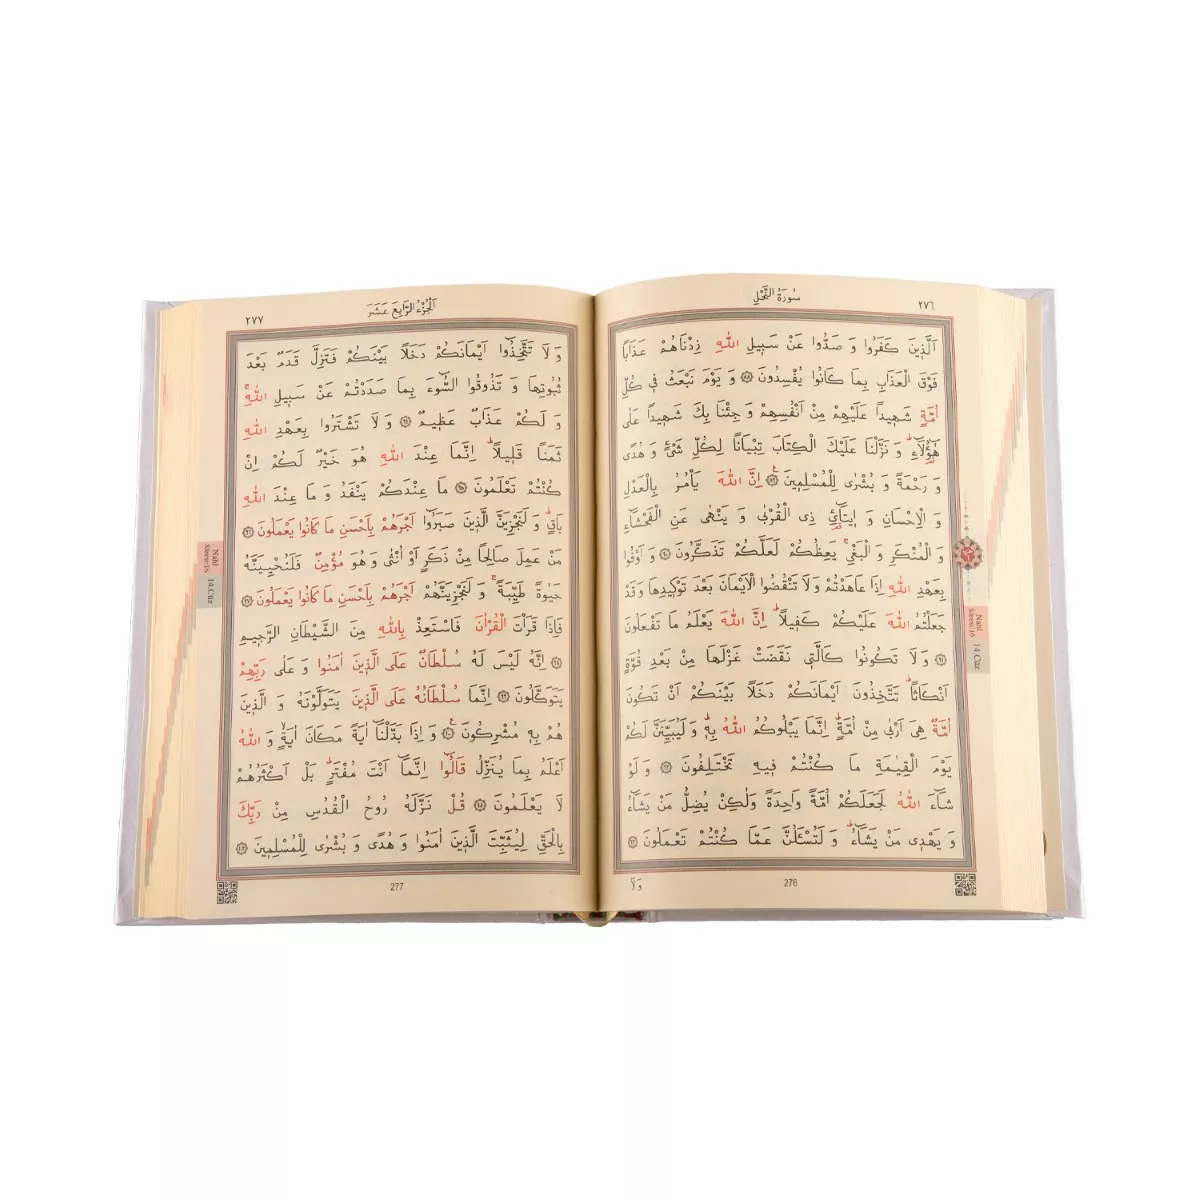 سُورَةُ النَّحْلِ
٢٧٦
اَلَّذ۪ينَ كَفَرُوا وَ صَدُّوا عَنْ سَب۪يلِ اللّٰهِ زِدْنَاهُمْ عَذَاباً
فَوْقَ الْعَذَابِ بِمَا كَانُوا يُفْسِدُونَ ﴿٨٨﴾ وَ يَوْمَ نَبْعَثُ ف۪ي كُلِّ
اُمَّةٍ شَه۪يداً عَلَيْهِمْ مِنْ اَنْفُسِهِمْ وَ جِئْنَا بِكَ شَه۪يداً عَلٰى
هٰٓؤُ۬لَٓاءِۜ وَ نَزَّلْنَا عَلَيْكَ الْكِتَابَ تِبْيَاناً لِكُلِّ شَيْءٍ وَ هُدًى
وَ رَحْمَةً وَ بُشْرٰى لِلْمُسْلِم۪ينَ ﴿٨٩﴾ اِنَّ اللّٰهَ يَأْمُرُ بِالْعَدْلِ
وَ الْاِحْسَانِ وَ ا۪يتَٓائِ ذِي الْقُرْبٰى وَ يَنْهٰى عَنِ الْفَحْشَٓاءِ
وَ الْمُنْكَرِ وَ الْبَغْيِۚ يَعِظُكُمْ لَعَلَّكُمْ تَذَكَّرُونَ ﴿٩٠﴾ وَ اَوْفُوا
بِعَهْدِ اللّٰهِ اِذَا عَاهَدْتُمْ وَ لَا تَنْقُضُوا الْاَيْمَانَ بَعْدَ تَوْك۪يدِهَا وَ قَدْ
جَعَلْتُمُ اللّٰهَ عَلَيْكُمْ كَف۪يلاًۜ اِنَّ اللّٰهَ يَعْلَمُ مَا تَفْعَلُونَ
﴿٩١﴾ وَ لَا تَكُونُوا كَالَّت۪ي نَقَضَتْ غَزْلَهَا مِنْ بَعْدِ قُوَّةٍ
اَنْكَاثاًۜ تَتَّخِذُونَ اَيْمَانَكُمْ دَخَلاً بَيْنَكُمْ اَنْ تَكُونَ
اُمَّةٌ هِيَ اَرْبٰى مِنْ اُمَّةٍۜ اِنَّمَا يَبْلُوكُمُ اللّٰهُ بِه۪ۜ وَ لَيُبَيِّنَنَّ لَكُمْ
يَوْمَ الْقِيٰمَةِ مَا كُنْتُمْ ف۪يهِ تَخْتَلِفُونَ ﴿٩٢﴾ وَ لَوْ
شَٓاءَ اللّٰهُ لَجَعَلَكُمْ اُمَّةً وَاحِدَةً وَلٰكِنْ يُضِلُّ مَنْ يَشَٓاءُ
وَ يَهْد۪ي مَنْ يَشَٓاءُۜ وَ لَتُسْـَٔلُنَّ عَمَّا كُنْتُمْ تَعْمَلُونَ ﴿٩٣﴾
Nahl
Sûresi:16
14.Cüz
276
وَلَا
اَلْجُزْءُ الرَّابِعَ عَشَرَ
٢٧٧
وَ لَا تَتَّخِذُٓوا اَيْمَانَكُمْ دَخَلاً بَيْنَكُمْ فَتَزِلَّ قَدَمٌ بَعْدَ
ثُبُوتِهَا وَ تَذُوقُوا السُّٓوءَ بِمَا صَدَدْتُمْ عَنْ سَب۪يلِ اللّٰهِۚ
وَ لَكُمْ عَذَابٌ عَظ۪يمٌ ﴿٩٤﴾ وَ لَا تَشْتَرُوا بِعَهْدِ اللّٰهِ
ثَمَناً قَل۪يلاًۜ اِنَّمَا عِنْدَ اللّٰهِ هُوَ خَيْرٌ لَكُمْ اِنْ
كُنْتُمْ تَعْلَمُونَ ﴿٩٥﴾ مَا عِنْدَكُمْ يَنْفَدُ وَ مَا عِنْدَ اللّٰهِ
بَاقٍۜ وَ لَنَجْزِيَنَّ الَّذ۪ينَ صَبَرُٓوا اَجْرَهُمْ بِاَحْسَنِ مَا كَانُوا يَعْمَلُونَ ﴿٩٦﴾
مَنْ عَمِلَ صَالِحاً مِنْ ذَكَرٍ اَوْ اُنْثٰى وَ هُوَ مُؤْمِنٌ فَلَنُحْيِيَنَّهُ
حَيٰوةً طَيِّبَةًۚ وَ لَنَجْزِيَنَّهُمْ اَجْرَهُمْ بِاَحْسَنِ مَا كَانُوا يَعْمَلُونَ ﴿٩٧﴾
فَاِذَا قَرَأْتَ الْقُرْاٰنَ فَاسْتَعِذْ بِاللّٰهِ مِنَ الشَّيْطَانِ الرَّج۪يمِ
﴿٩٨﴾ اِنَّهُ لَيْسَ لَهُ سُلْطَانٌ عَلَى الَّذ۪ينَ اٰمَنُوا وَ عَلٰى رَبِّهِمْ
يَتَوَكَّلُونَ ﴿٩٩﴾ اِنَّمَا سُلْطَانُهُ عَلَى الَّذ۪ينَ يَتَوَلَّوْنَهُ وَ الَّذ۪ينَ
هُمْ بِه۪ مُشْرِكُونَ ﴿١٠٠﴾ وَ اِذَا بَدَّلْنَٓا اٰيَةً مَكَانَ اٰيَةٍۙ وَ اللّٰهُ
اَعْلَمُ بِمَا يُنَزِّلُ قَالُٓوا اِنَّمَٓا اَنْتَ مُفْتَرٍۜ بَلْ اَكْثَرُهُمْ
لَا يَعْلَمُونَ ﴿١٠١﴾ قُلْ نَزَّلَهُ رُوحُ الْقُدُسِ مِنْ رَبِّكَ
بِالْحَقِّ لِيُثَبِّتَ الَّذ۪ينَ اٰمَنُوا وَ هُدًى وَ بُشْرٰى لِلْمُسْلِم۪ينَ ﴿١٠٢﴾
Nahl
Sûresi:16
14.Cüz
277